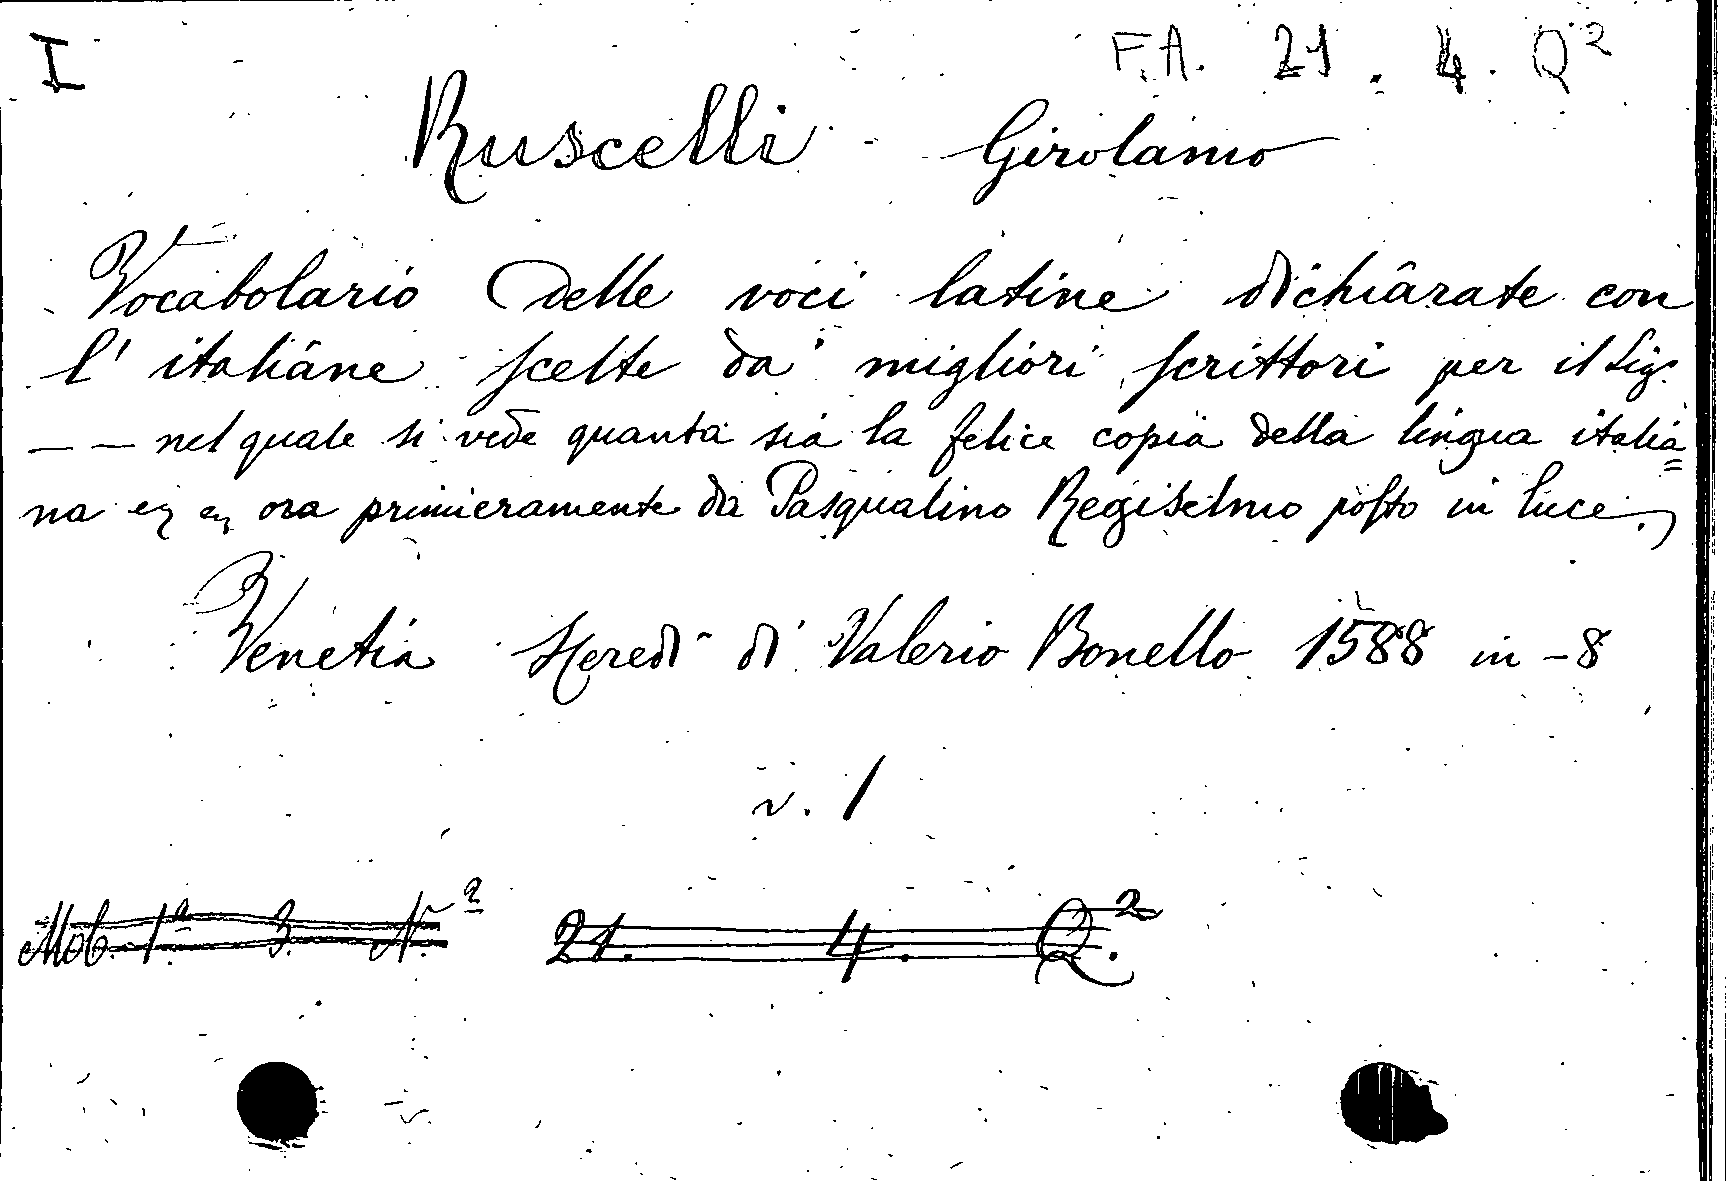 I F.A. 21. 4. Q2
Ruscelli Girolamo
Vocabolario delle voci latine dichiarate con
l'italiane scelte da' migliori scrittori per il Sig.
— — nel quale si vede quanta sia la felice copia della lingua italia=
na ora primieramente da Pasqualino Regiselmo posto in luce.
Venetia Heredi di Valerio Bonello 1588 in-8
v. 1
Mob. 1a 3. N.2 21. 4. Q.2